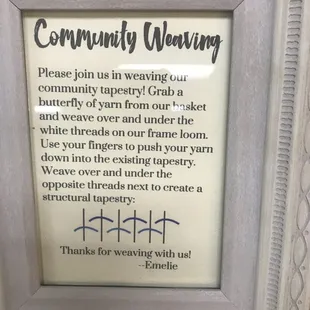 Community Weaving
Please join us in weaving our
community tapestry! Grab a
butterfly of yarn from our basket
and weave over and under the
white threads on our frame loom.
Use your fingers to push your yarn
down into the existing tapestry.
Weave over and under the
opposite threads next to create a
structural tapestry:
Thanks for weaving with us!
--Emelie